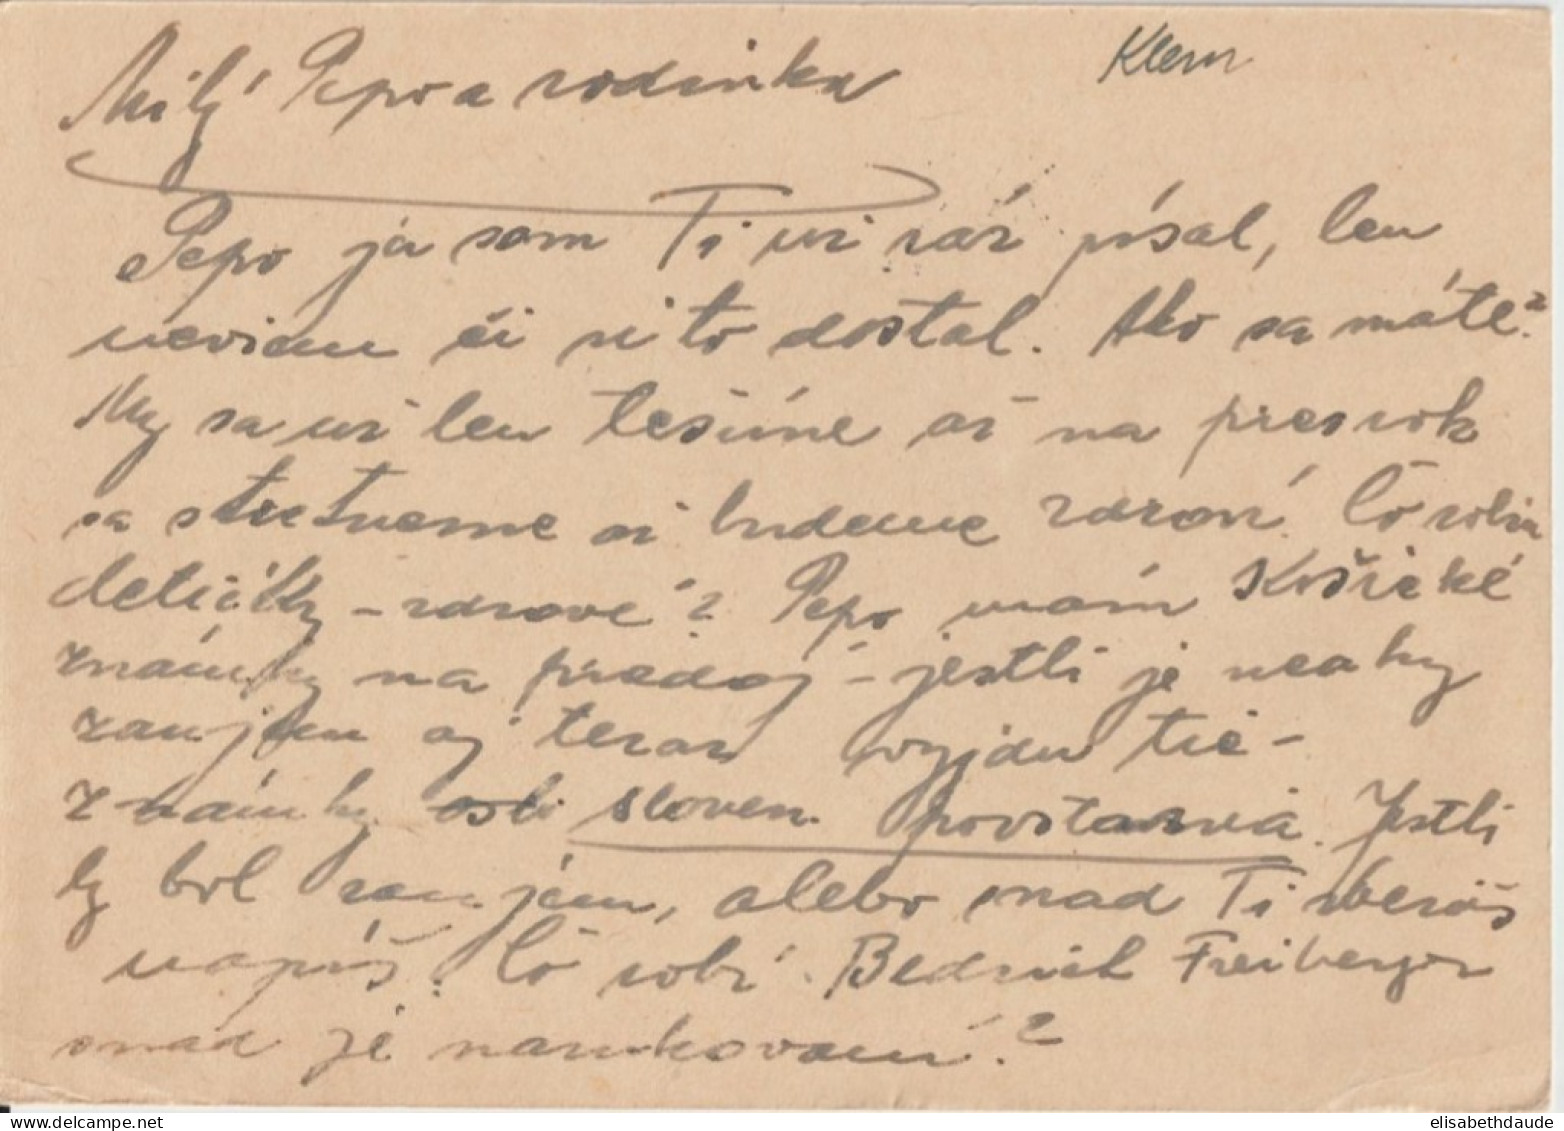 Klem
Milý Pepo a rodinka
Pepo ja som Ti už ráz písal, len
neviem či si to dostal. Ako sa máte?
My sa už len tešíme až na presrok
sa stretneme až budeme zdraví. Čo robia
detičky - zdravé? Pepo mám Košické
známky na predaj - jestli je neaky
zaujem aj teraz vyjdu tie -
známky sloven. povstania. Jestli
by bol zaujem, alebo snad Ti zberáš
napíš. Čo robí. Bedrich Freiberger
snad je narukovaní?
www.delcampe.net
elisabethdaude